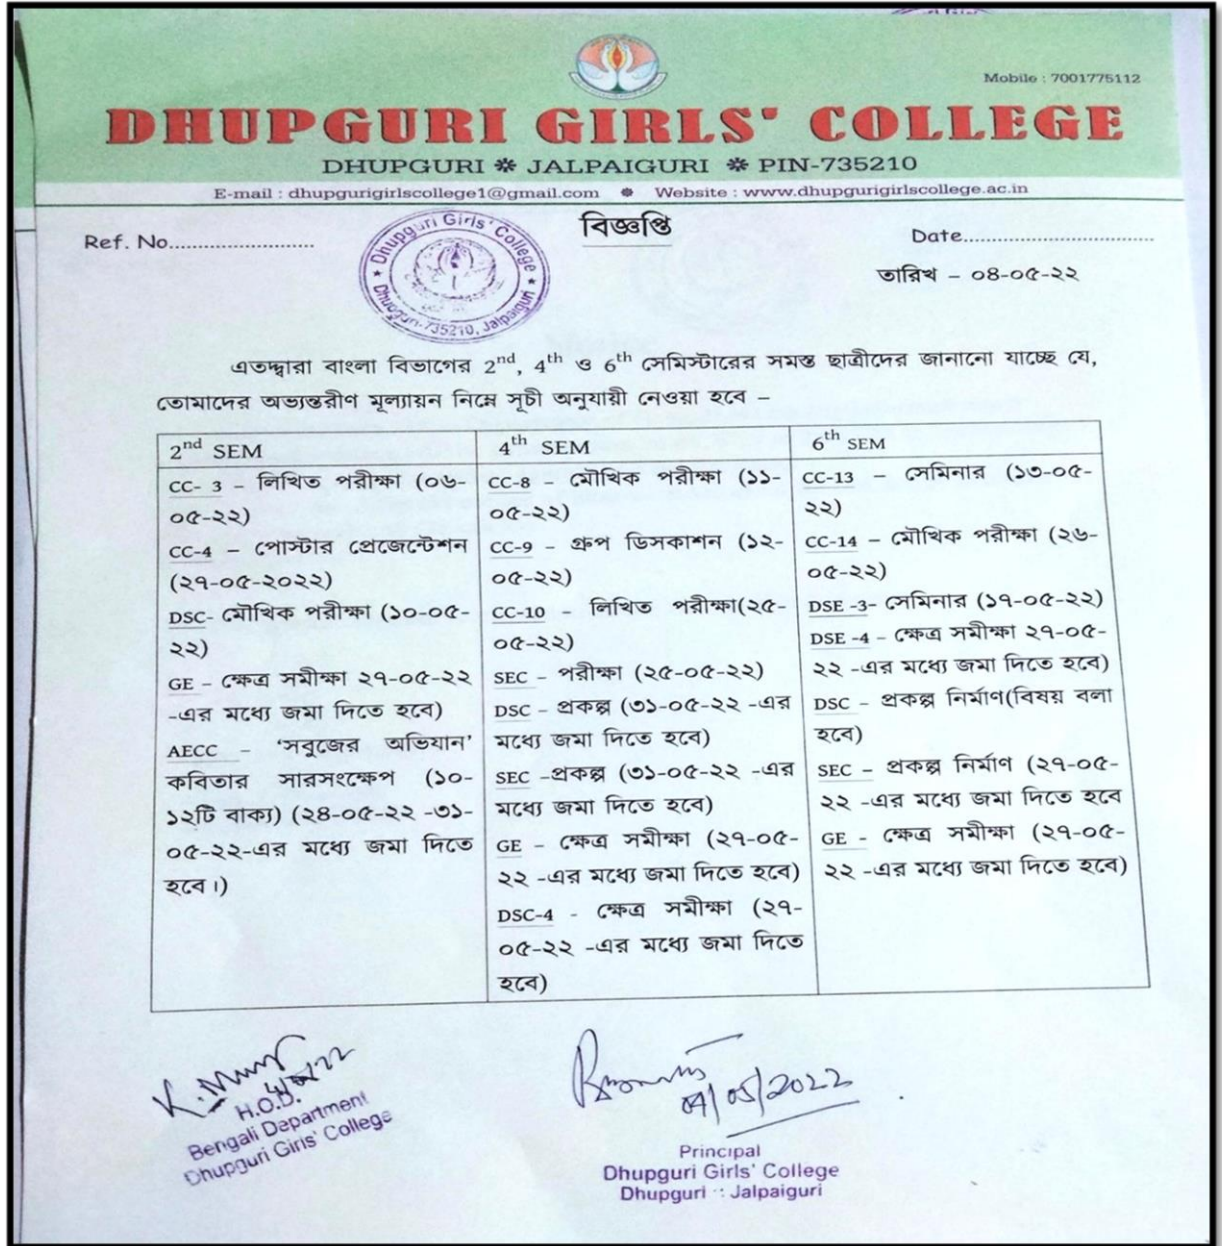 Mobile : 7001775112
DHUPGURI GIRLS' COLLEGE
DHUPGURI ❋ JALPAIGURI ❋ PIN-735210
E-mail : dhupgurigirlscollege1@gmail.com ❋ Website : www.dhupgurigirlscollege.ac.in
বিজ্ঞপ্তি
Ref. No.........................
Dhupguri Girls' College
Dhupguri-735210, Jalpaiguri
Date.................................
তারিখ – ০৪-০৫-২২
এতদ্দ্বারা বাংলা বিভাগের 2nd, 4th ও 6th সেমিস্টারের সমস্ত ছাত্রীদের জানানো যাচ্ছে যে,
তোমাদের অভ্যন্তরীণ মূল্যায়ন নিম্নে সূচী অনুযায়ী নেওয়া হবে –
2nd SEM
CC- 3 – লিখিত পরীক্ষা (০৬-
০৫-২২)
CC-4 – পোস্টার প্রেজেন্টেশন
(২৭-০৫-২০২২)
DSC- মৌখিক পরীক্ষা (১০-০৫-
২২)
GE – ক্ষেত্র সমীক্ষা ২৭-০৫-২২
-এর মধ্যে জমা দিতে হবে)
AECC – ‘সবুজের অভিযান’
কবিতার সারসংক্ষেপ (১০-
১২টি বাক্য) (২৪-০৫-২২ -৩১-
০৫-২২-এর মধ্যে জমা দিতে
হবে।)
4th SEM
CC-8 – মৌখিক পরীক্ষা (১১-
০৫-২২)
CC-9 – গ্রুপ ডিসকাশন (১২-
০৫-২২)
CC-10 – লিখিত পরীক্ষা(২৫-
০৫-২২)
SEC – পরীক্ষা (২৫-০৫-২২)
DSC – প্রকল্প (৩১-০৫-২২ -এর
মধ্যে জমা দিতে হবে)
SEC –প্রকল্প (৩১-০৫-২২ -এর
মধ্যে জমা দিতে হবে)
GE – ক্ষেত্র সমীক্ষা (২৭-০৫-
২২ -এর মধ্যে জমা দিতে হবে)
DSC-4 - ক্ষেত্র সমীক্ষা (২৭-
০৫-২২ -এর মধ্যে জমা দিতে
হবে)
6th SEM
CC-13 – সেমিনার (১৩-০৫-
২২)
CC-14 – মৌখিক পরীক্ষা (২৬-
০৫-২২)
DSE -3- সেমিনার (১৭-০৫-২২)
DSE -4 – ক্ষেত্র সমীক্ষা ২৭-০৫-
২২ -এর মধ্যে জমা দিতে হবে)
DSC – প্রকল্প নির্মাণ(বিষয় বলা
হবে)
SEC – প্রকল্প নির্মাণ (২৭-০৫-
২২ -এর মধ্যে জমা দিতে হবে
GE - ক্ষেত্র সমীক্ষা (২৭-০৫-
২২ -এর মধ্যে জমা দিতে হবে)
H.O.D.
Bengali Department
Dhupguri Girls' College
04/05/2022
Principal
Dhupguri Girls' College
Dhupguri :: Jalpaiguri